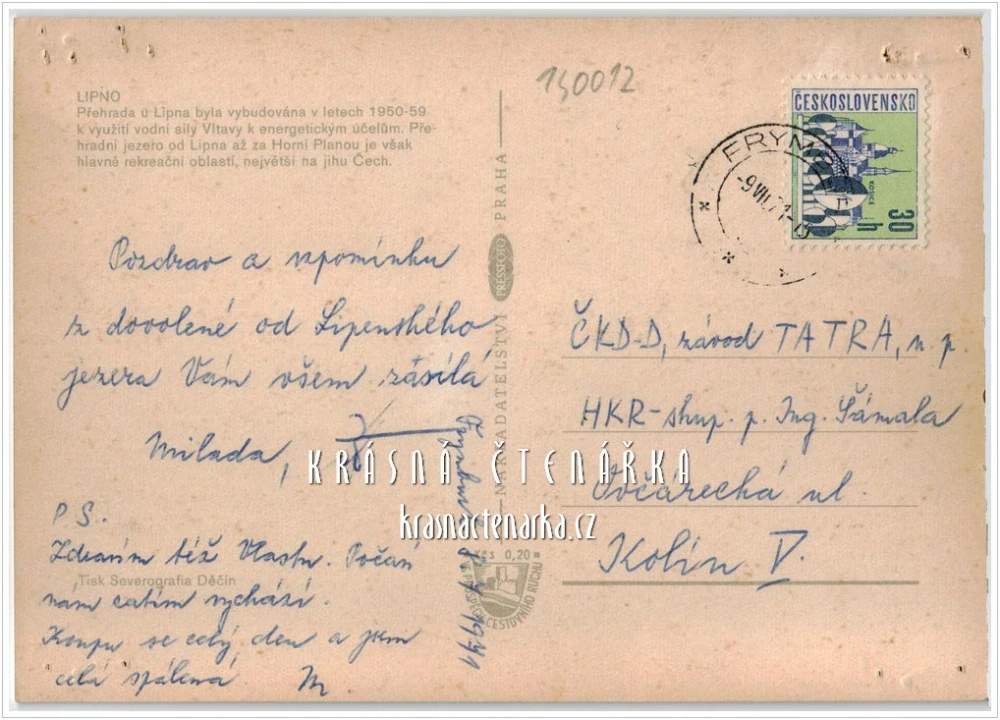 LIPNO
Přehrada u Lipna byla vybudována v letech 1950-59
k využití vodní síly Vltavy k energetickým účelům. Pře-
hradní jezero od Lipna až za Horní Planou je však
hlavně rekreační oblastí, největší na jihu Čech.
150012
ČESKOSLOVENSKO
KOŠICE
30
h
FRYM
-9.VII.71-15
Pozdrav a vzpomínku
z dovolené od Lipenského
jezera Vám všem zásílá
Milada,
PS.
Zdravím též Vlastu. Počasí
nám zatím vychází.
Koupu se celý den a jsem
celá spálená. M
Frymburk 8.7.1971
NAKLADATELSTVÍ PRESSFOTO PRAHA
ČKD-D, závod TATRA, n. p.
HKR-skup. p. Ing. Šámala
Ovčárecká ul.
Kolín V.
KRÁSNÁ ČTENÁŘKA
krasnactenarka.cz
Kčs 0,20
CESTOVNÍHO RUCHU
Tisk Severografia Děčín